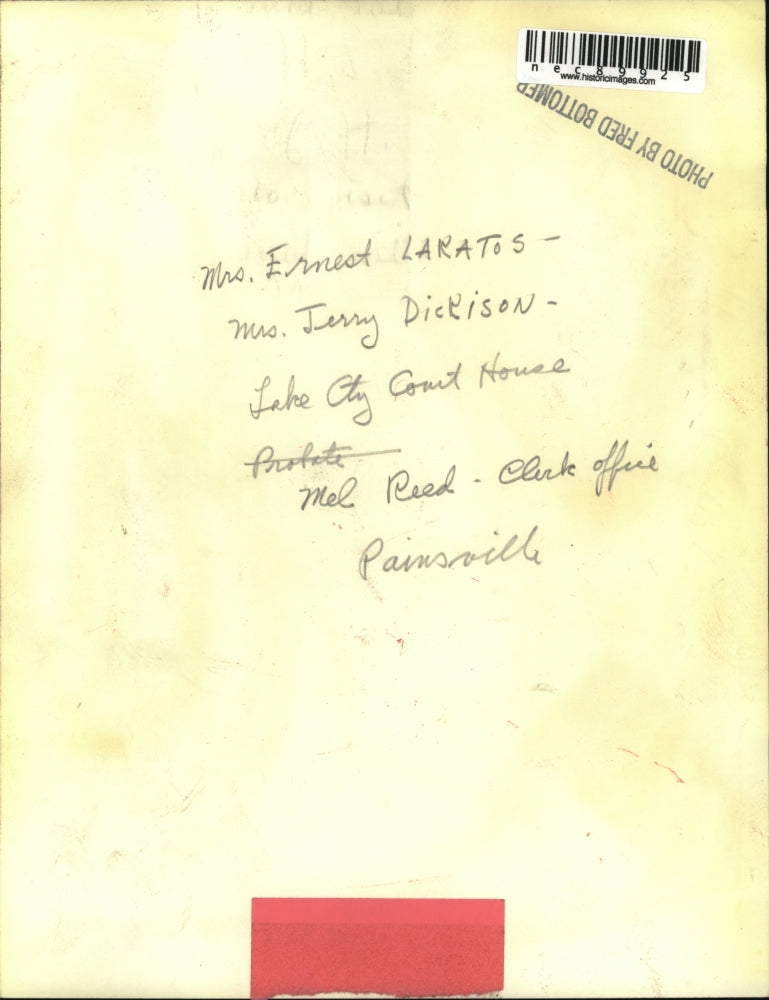 nec89925
www.historicimages.com
PHOTO BY FRED BOTTOMER
Mrs. Ernest LARATOS -
Mrs. Jerry DICKISON -
Lake Cty Court House
Probate
Mel Reed - Clerk office
Painsville